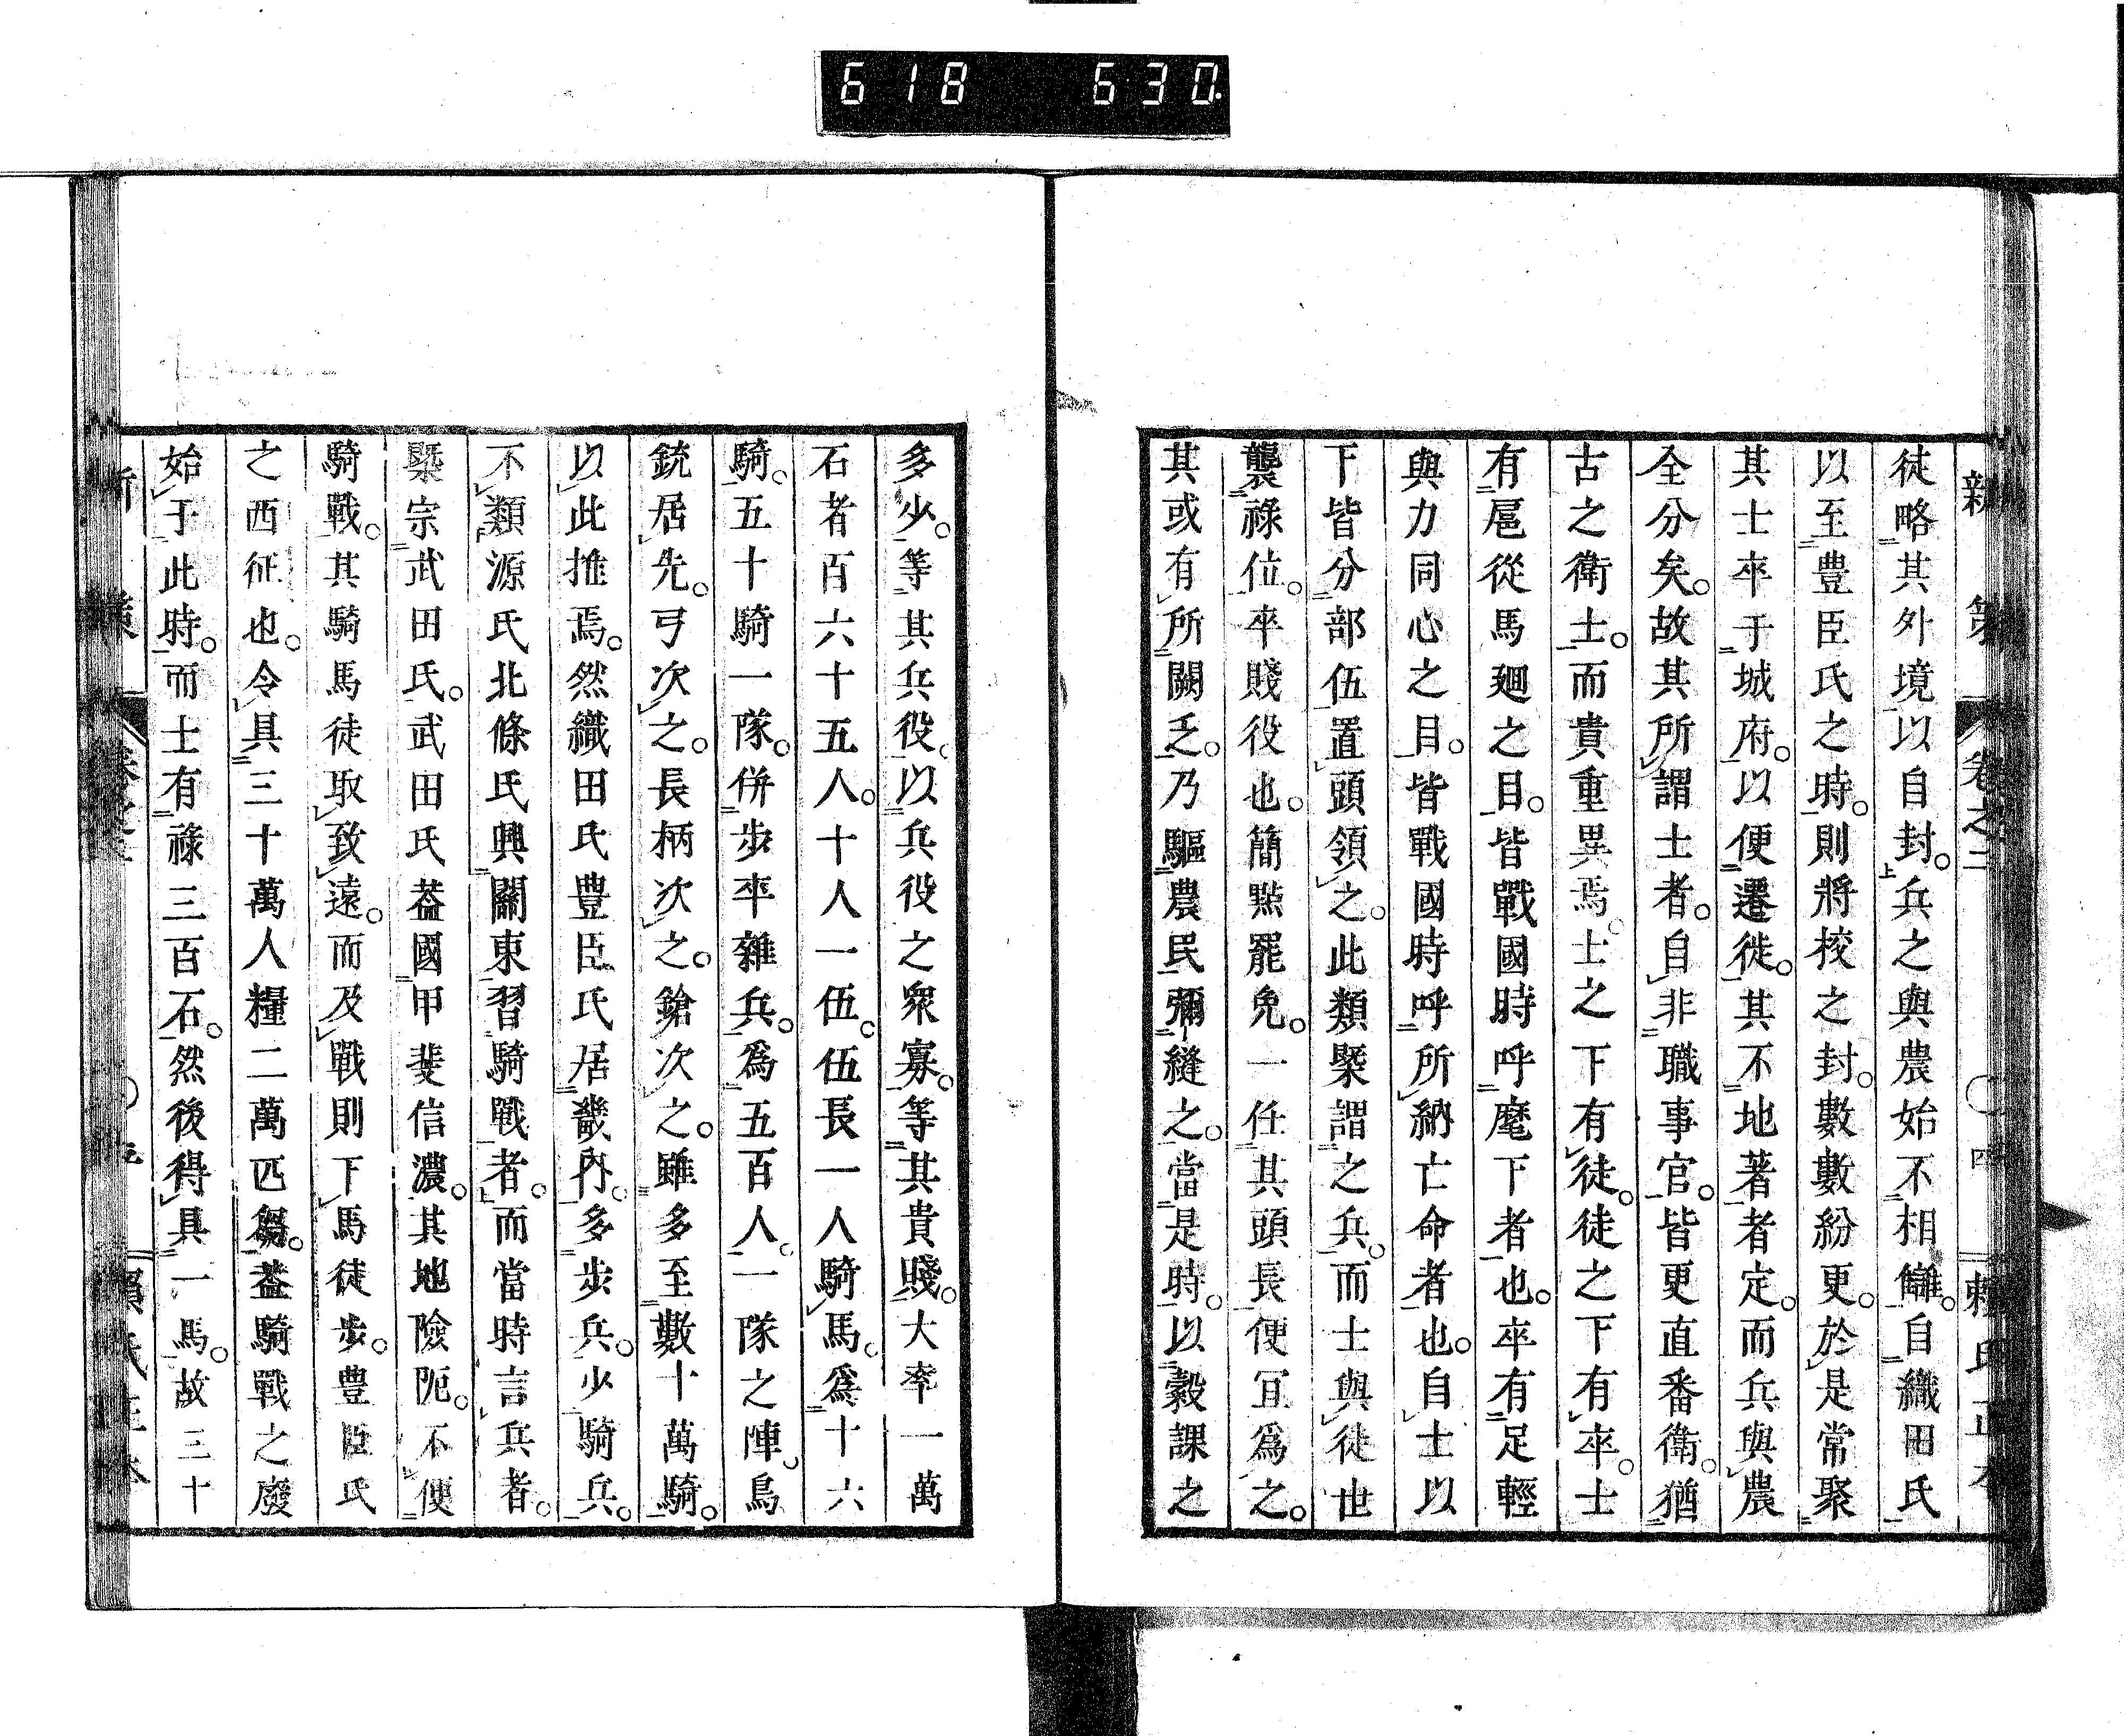 618 630
新策 卷之二 〇四 賴氏正本
徒略其外境以自封。兵之與農始不相讎。自織田氏
以至豊臣氏之時。則將校之封。數數紛更。於是常聚
其士卒于城府。以便遷徙。其不地著者定。而兵與農
全分矣。故其所謂士者。自非職事官。皆更直番衛。猶
古之衛士。而貴重異焉。士之下有徒。徒之下有卒。士
有扈從馬廻之目。皆戰國時呼麾下者也。卒有足輕
與力同心之目。皆戰國時呼所納亡命者也。自士以
下皆分部伍置頭領之。此類槩謂之兵。而士與徒世
襲祿位。卒賤役也。簡點罷免。一任其頭長便冝爲之。
其或有所闕乏。乃驅農民彌縫之。當是時。以穀課之
多少。等其兵役。以兵役之衆寡。等其貴賤。大率一萬
石者百六十五人。十人一伍。伍長一人騎馬。爲十六
騎。五十騎一隊。併步卒雜兵。爲五百人。一隊之陣。鳥
銃居先。弓次之。長柄次之。鎗次之。雖多至數十萬騎。
以此推焉。然織田氏豊臣氏居畿內。多步兵。少騎兵。
不類源氏北條氏興關東習騎戰者。而當時言兵者。
槩宗武田氏。武田氏葢國甲斐信濃。其地險阨。不便
騎戰。其騎馬徒取致遠。而及戰則下馬徒步。豊臣氏
之西征也。令具三十萬人糧二萬匹芻。葢騎戰之廢
始于此時。而士有祿三百石。然後得具一馬。故三十